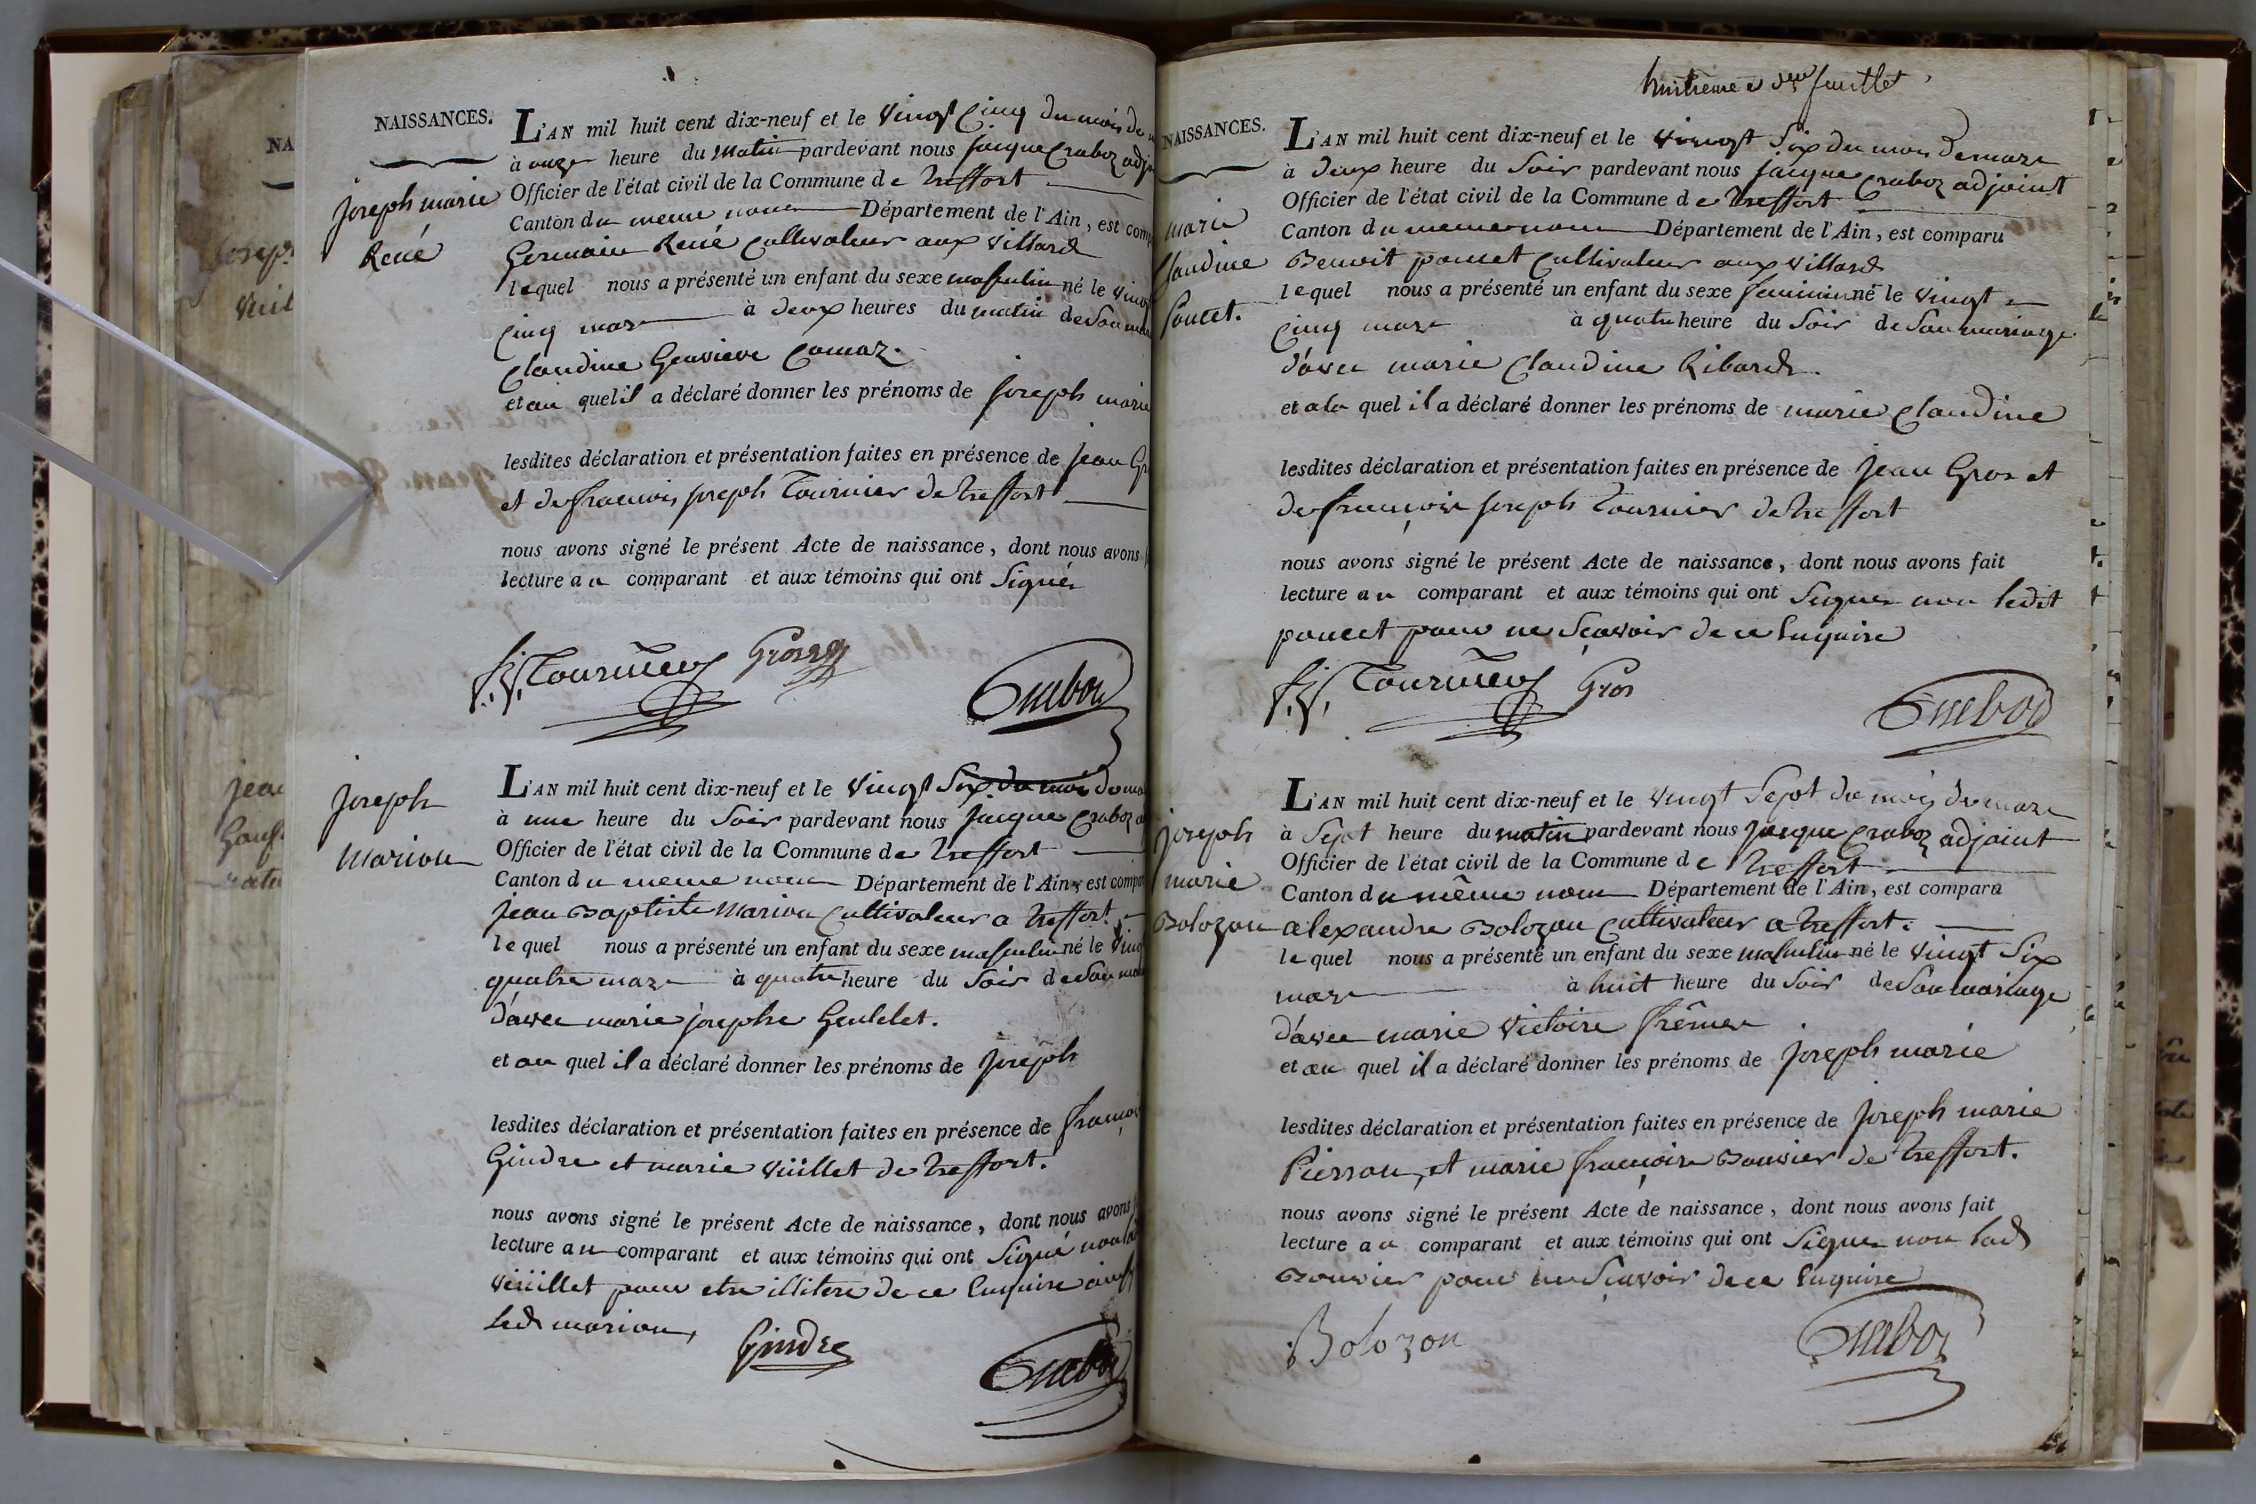 NAISSANCES.
joseph marie
René
L'AN mil huit cent dix-neuf et le vingt cinq du mois de
à onze heure du matin pardevant nous jacque Craboz adj
Officier de l'état civil de la Commune de treffort
Canton du meme nom Département de l'Ain, est comp
Germain René Cultivateur aux villards
lequel nous a présenté un enfant du sexe masculin né le vingt
cinq mars à deux heures du matin de son
Claudine Genevieve
et au quel il a déclaré donner les prénoms de joseph marie
lesdites déclaration et présentation faites en présence de jean Gr
et de francois joseph Tournier de treffort
nous avons signé le présent Acte de naissance, dont nous avons
lecture au comparant et aux témoins qui ont Signés
f. j. Tournier Gros Craboz
joseph
Marion
L'AN mil huit cent dix-neuf et le vingt Six du mois de ma
à une heure du Soir pardevant nous jacque Craboz a
Officier de l'état civil de la Commune de treffort
Canton du meme nom Département de l'Ain, est compa
jean Baptiste Marion Cultivateur a treffort
lequel nous a présenté un enfant du sexe masculin né le vingt
quatre mars à quatre heure du Soir de son ma
d'avec marie josephe
et au quel il a déclaré donner les prénoms de joseph
lesdites déclaration et présentation faites en présence de françois
Gindre et marie vüillet de treffort.
nous avons signé le présent Acte de naissance, dont nous avons
lecture au comparant et aux témoins qui ont Signé non lad
vüillet pour etre illiteré de ce Enquise ainsy
led marion,
Gindre Craboz
huitieme feuillet
NAISSANCES.
marie
Claudine
Poncet.
L'AN mil huit cent dix-neuf et le vingt Six du mois de mars
à deux heure du Soir pardevant nous jacque Craboz adjoint
Officier de l'état civil de la Commune de treffort
Canton du meme nom Département de l'Ain, est comparu
Benoit poncet Cultivateur aux villards
lequel nous a présenté un enfant du sexe feminin né le vingt
cinq mars à quatre heure du Soir de Son mariage
d'avec marie Claudine Ribard.
et a la quel il a déclaré donner les prénoms de marie Claudine
lesdites déclaration et présentation faites en présence de jean Gros et
de françois joseph Tournier de treffort
nous avons signé le présent Acte de naissance, dont nous avons fait
lecture au comparant et aux témoins qui ont Signer non ledit
poncet pour ne Sçavoir de ce Enquise
f. j. Tournier Gros Craboz
joseph
marie
Bolozon
L'AN mil huit cent dix-neuf et le vingt Sept du mois de mars
à Sept heure du matin pardevant nous jacque Craboz adjoint
Officier de l'état civil de la Commune de treffort
Canton du même nom Département de l'Ain, est comparu
alexandre Bolozon Cultivateur a treffort.
lequel nous a présenté un enfant du sexe masculin né le vingt Six
mars à huit heure du Soir de Son mariage
d'avec marie victoire
et au quel il a déclaré donner les prénoms de joseph marie
lesdites déclaration et présentation faites en présence de joseph marie
Pierron, et marie françoise Bouvier de treffort.
nous avons signé le présent Acte de naissance, dont nous avons fait
lecture au comparant et aux témoins qui ont Signer non lad
Bouvier pour ne Sçavoir de ce Enquise
Bolozon Craboz